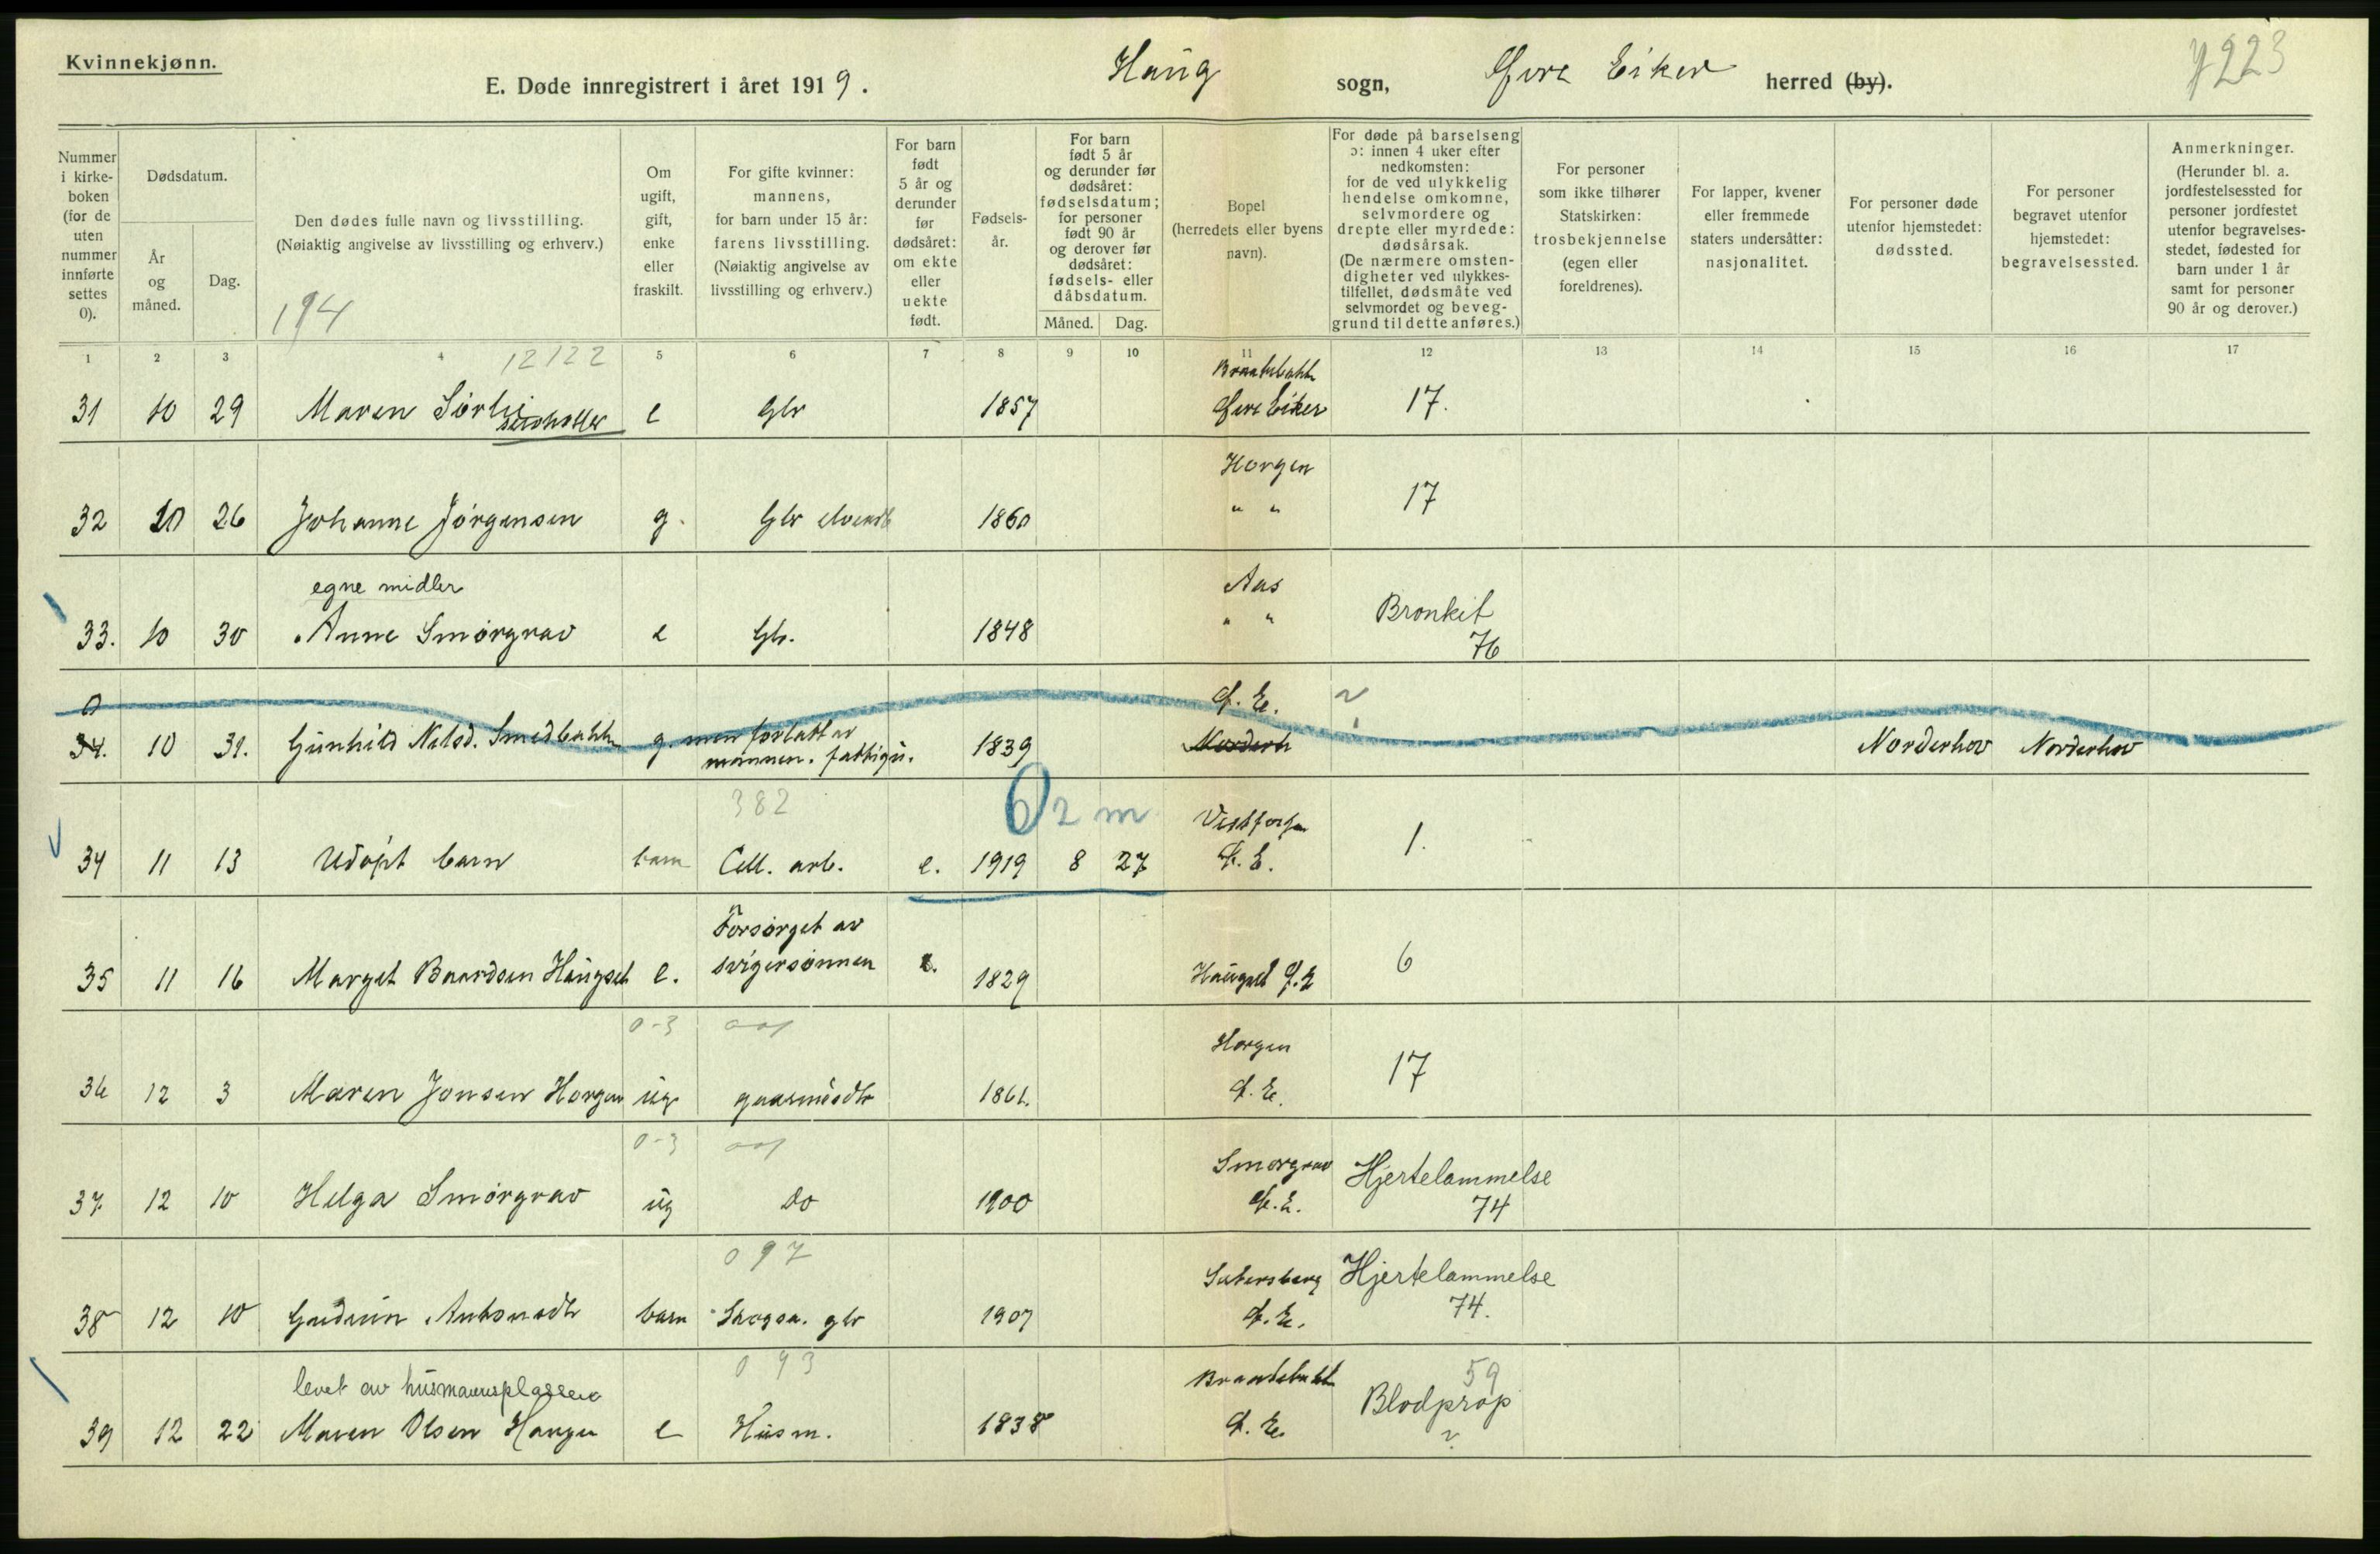 Kvinnekjønn.
E. Døde innregistrert i året 1919.
Haug sogn, Øvre Eiker herred (by).
7223
Nummer i kirke-boken (for de uten nummer innførte settes 0).
Dødsdatum.
År og måned.
Dag.
Den dødes fulle navn og livsstilling.
(Nøiaktig angivelse av livsstilling og erhverv.)
194
Om ugift, gift, enke eller fraskilt.
For gifte kvinner: mannens, for barn under 15 år: farens livsstilling. (Nøiaktig angivelse av livsstilling og erhverv.)
For barn født 5 år og derunder før dødsåret: om ekte eller uekte født.
Fødsels-år.
For barn født 5 år og derunder før dødsåret: fødselsdatum; for personer født 90 år og derover før dødsåret: fødsels- eller dåbsdatum.
Måned. Dag.
Bopel (herredets eller byens navn).
For døde på barselseng ɔ: innen 4 uker efter nedkomsten: for de ved ulykkelig hendelse omkomne, selvmordere og drepte eller myrdede: dødsårsak. (De nærmere omsten-digheter ved ulykkes-tilfellet, dødsmåte ved selvmordet og beveg-grund til dette anføres.)
For personer som ikke tilhører Statskirken: trosbekjennelse (egen eller foreldrenes).
For lapper, kvener eller fremmede staters undersåtter: nasjonalitet.
For personer døde utenfor hjemstedet: dødssted.
For personer begravet utenfor hjemstedet: begravelsessted.
Anmerkninger. (Herunder bl. a. jordfestelsessted for personer jordfestet utenfor begravelses-stedet, fødested for barn under 1 år samt for personer 90 år og derover.)
1 2 3 4 5 6 7 8 9 10 11 12 13 14 15 16 17
12122
31 10 29 Maren Sørli e Glr 1857 Øvre Eiker 17.
Horgen
32 10 26 Johanne Jørgensen g. Glr 1860 " " 17
egne midler Aas
33. 10 30 Anne Smørgrav e Glr. 1848 " " Bronkit
76
0 Ø. E. ?
34. 10 31. Gunhild Nilsd. Smedbakk g. men forlatt av mannen. 1839 Norderh Norderhov Norderhov
382 0 2 m
34 11 13 Udøpt barn barn Cell. arb. e. 1919 8 27 Ø. E. 1.
Forsørget av
35 11 16 Marget Baardsen Haugset e. svigersønnen 1829 Haugset Ø. E 6
0-3 Horgen
36 12 3 Maren Jonsen Horgen ug 1861. Ø. E. 17
0-3 Smørgrav
37 12 10 Helga Smørgrav ug do 1900 Ø. E. Hjertelammelse
74
097
38 12 10 Gudrun barn Skogsa. glr 1907 Ø. E. Hjertelammelse
74.
093 59
levet av husmannsplassen
39 12 22 Maren Olsen e Husm. 1838 Ø. E. Blodprop
?